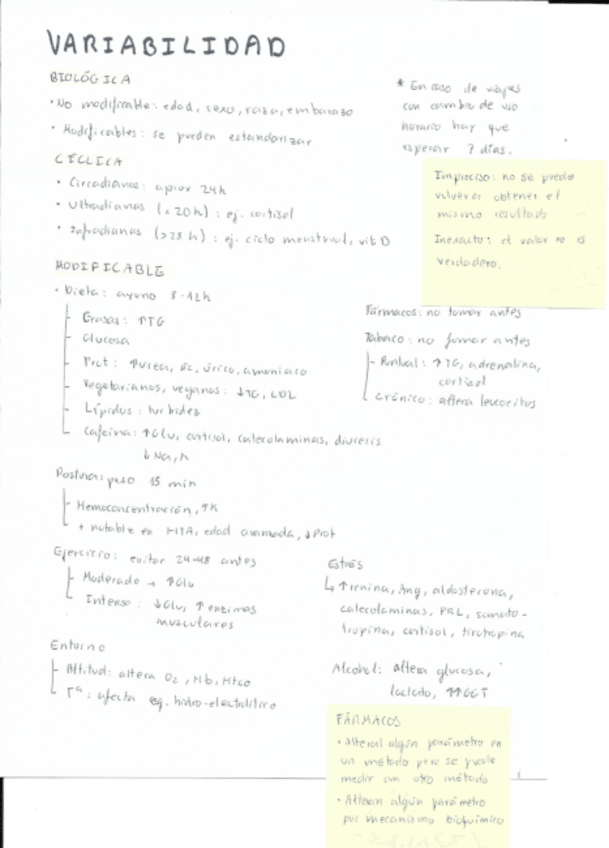 VARIABILIDAD
BIOLÓGICA
· No modificable: edad, sexo, raza, embarazo
· Modificables: se pueden estandarizar
* En caso de viajes
con cambio de uso
horario hay que
esperar 7 días.
CÍCLICA
· Circadianas: aprox 24h
· Ultradianas (<20h): ej. cortisol
· Infradianas (>28h): ej. ciclo menstrual, vit D
Impreciso: no se puede
volver a obtener el
mismo resultado
Inexacto: el valor no es
verdadero.
MODIFICABLE
· Dieta: ayuno 8-12h
Grasas: ↑TG
Glucosa
Prot: ↑urea, ác. úrico, amoniaco
Vegetarianos, veganos: ↓TG, LDL
Lípidos: turbidez
Cafeína: ↑Glu, cortisol, catecolaminas, diuresis
↓Na, K
Fármacos: no tomar antes
Tabaco: no fumar antes
Puntual: ↑TG, adrenalina,
cortisol
Crónico: altera leucocitos
Postura: 15 min
Hemoconcentración, ↑K
+ notable en HTA, edad avanzada, ↓Prot
Ejercicio: evitar 24-48 antes
Moderado → ↑Glu
Intenso: ↓Glu, ↑enzimas
musculares
Estrés
↳ ↑renina, Ang, aldosterona,
catecolaminas, PRL, somato-
tropina, cortisol, tirotropina
Entorno
Altitud: altera O2, Hb, Htco
Tª: afecta eq. hidro-electrolítico
Alcohol: altera glucosa,
lactato, ↑↑GGT
FÁRMACOS
· Alteran algún parámetro en
un método pero se puede
medir con otro método
· Alteran algún parámetro
por mecanismo bioquímico